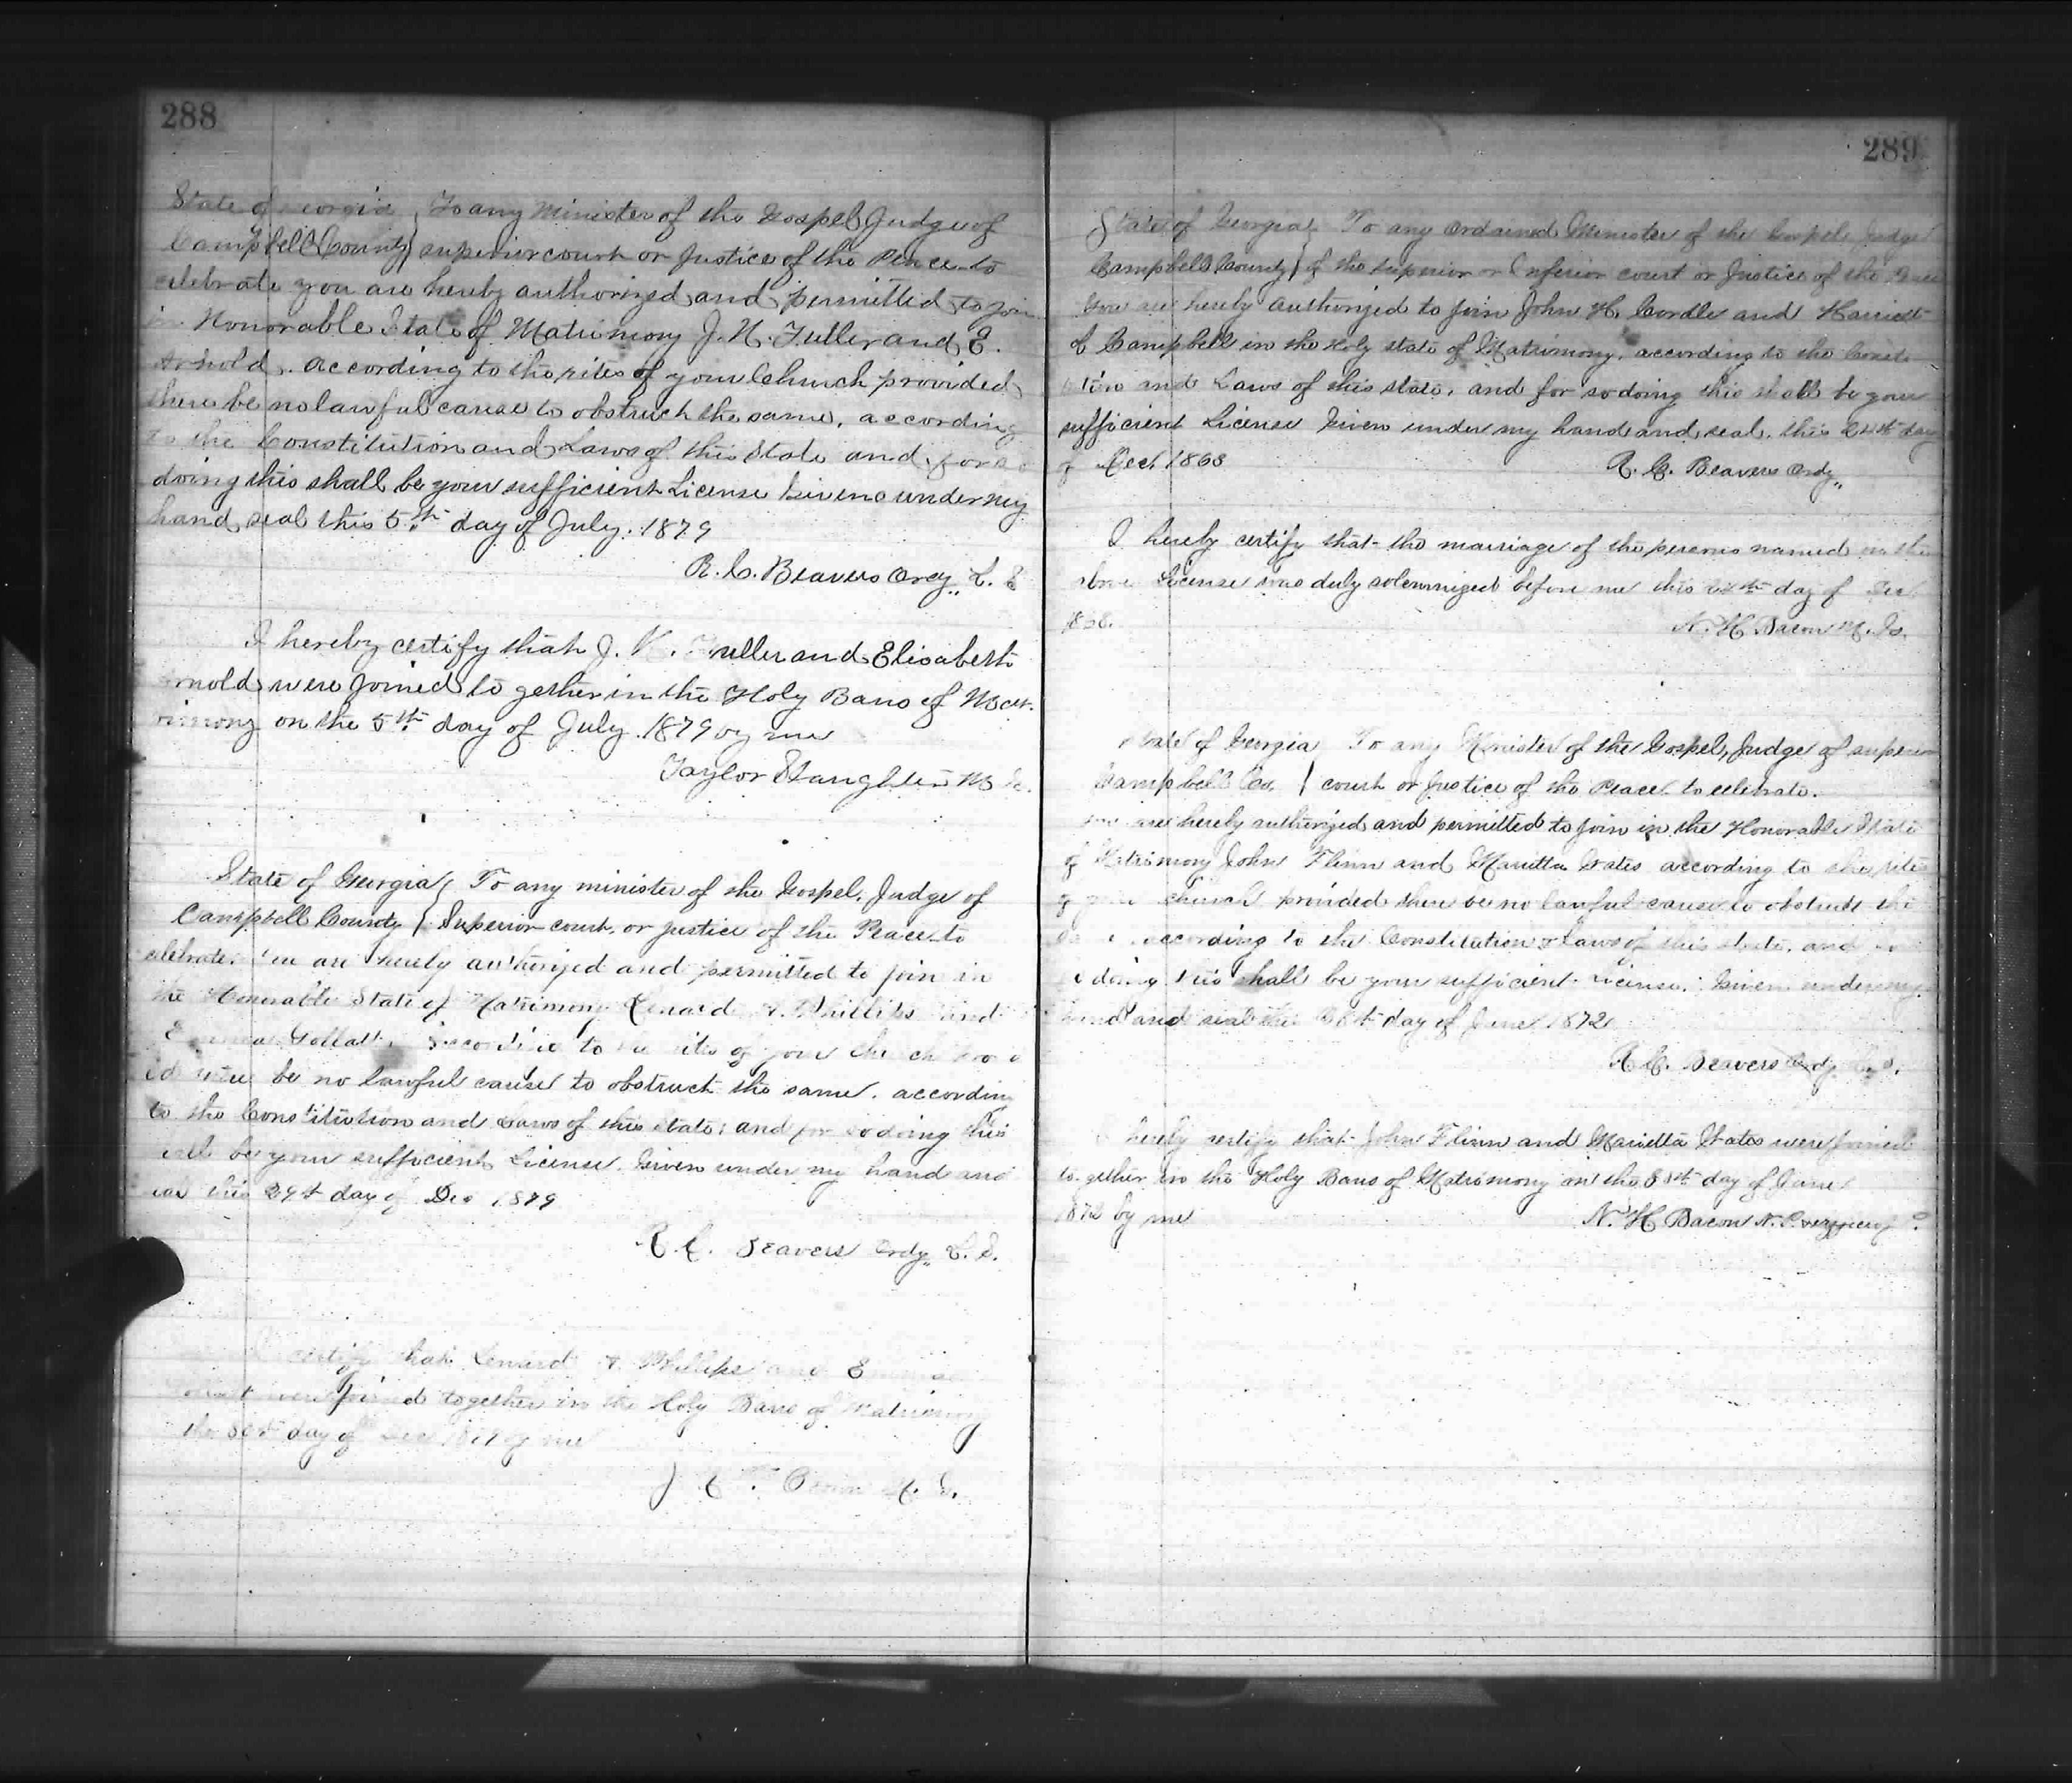 288
State of Georgia } To any Minister of the Gospel, Judge of
Campbell County } superior court or Justice of the Peace to
celebrate you are hereby authorized and permitted to join
in Honorable State of Matrimony J. N. Fuller and E.
Arnold. according to the rites of your Church provided
there be no lawful cause to obstruct the same, according
to the Constitution and Laws of this State and for so
doing this shall be your sufficient License Given under my
hand seal this 5th day of July. 1879
R. C. Beavers Ordy,, L. S
I hereby certify that J. N. Fuller and Elisabeth
Arnold were Joined to gether in the Holy Bans of Mat-
rimony on the 5th day of July 1879 by me
Taylor Slaughter M G.
State of Georgia } To any minister of the Gospel, Judge of
Campbell County } Superior court, or justice of the Peace to
celebrate. You are hereby authorized and permitted to join in
the Honorable State of Matrimony A. Phillips and
according to the rites of your church provid
ed there be no lawful cause to obstruct the same. according
to the Constitution and Laws of this State: and for so doing this
shall be your sufficient License. Given under my hand and
seal this 29th day of Dec 1879
R. C. Beavers Ordy,, L. S.
certify that A. Phillips and
were joined together in the Holy Bans of Matrimony
the 30th day of Dec 1879 by me
289
State of Georgia } To any ordained Minister of the Gospel, Judge
Campbell County } of the superior or Inferior court or Justice of the Peace
You are hereby authorized to join John H. Cordle and Harriett
of Campbell in the Holy state of Matrimony, according to the Consti
tution and Laws of this state, and for so doing this shall be your
sufficient License Given under my hand and seal. this 24th day
of Dec. 1868
R. C. Beavers Ordy,,
I hereby certify that the marriage of the persons named in the
above License was duly solemnized before me this day of Dec
1868.
N. H Bacon M. G.
State of Georgia } To any Minister of the Gospel, Judge of superior
Campbell Co. } court or Justice of the Peace to celebrate.
You are hereby authorized and permitted to join in the Honorable State
of Matrimony John Flinn and Marietta Gates according to the rites
of your church provided there be no lawful cause to obstruct the
same according to the Constitution & laws of this state, and for
so doing this shall be your sufficient License. Given under my
hand and seal this day of June 1872
R. C. Beavers Ordy L. S.
I hereby certify that John Flinn and Marietta Gates were joined
to gether in the Holy Bans of Matrimony on the day of June
1872 by me
N. H Bacon N. P.